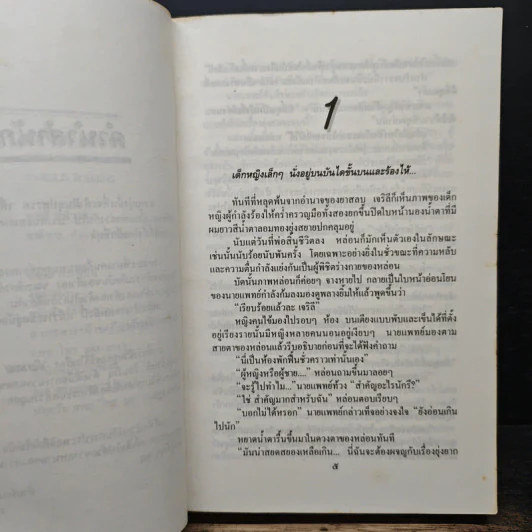 คำนำสำนัก
1
เด็กหญิงเล็กๆ นั่งอยู่บนบันไดขั้นบนและร้องไห้...
ทันทีที่หลุดพ้นจากอำนาจของยาสลบ เจรีลีก็เห็นภาพของเด็ก
หญิงผู้กำลังร้องไห้คร่ำครวญมือทั้งสองยกขึ้นปิดใบหน้านองน้ำตาที่มี
ผมยาวสีน้ำตาลอมทองยุ่งสยายปกคลุมอยู่
นับแต่วันที่พ่อสิ้นชีวิตลง หล่อนก็มักเห็นตัวเองในลักษณะ
เช่นนั้นนับร้อยนับพันครั้ง โดยเฉพาะอย่างยิ่งในชั่วขณะที่ความหลับ
และความตื่นกำลังแย่งกันเป็นผู้พิชิตร่างกายของหล่อน
บัดนั้นภาพหล่อนก็ค่อยๆ จางหายไป กลายเป็นใบหน้าอ่อนโยน
ของนายแพทย์กำลังก้มลงมองดูพลางยิ้มให้แล้วพูดขึ้นว่า
"เรียบร้อยแล้วละ เจรีลี"
หญิงคนไข้มองไปรอบๆ ห้อง บนเตียงแบบพับและเข็นได้ที่ตั้ง
อยู่เรียงรายนั้นมีหญิงหลายคนนอนอยู่เงียบๆ นายแพทย์มองตาม
สายตาของหล่อนแล้วรีบอธิบายก่อนที่จะได้ฟังคำถาม
"นี่เป็นห้องพักฟื้นชั่วคราวเท่านั้นเอง"
"ผู้หญิงหรือผู้ชาย...." หล่อนถามขึ้นมาลอยๆ
"จะรู้ไปทำไม..."นายแพทย์ท้วง "สำคัญอะไรนักรึ?"
"ใช่ สำคัญมากสำหรับฉัน" หล่อนตอบเรียบๆ
"บอกไม่ได้หรอก" นายแพทย์กล่าวเท็จอย่างจงใจ "ยังอ่อนเกิน
ไปนัก"
หยาดน้ำตารื้นขึ้นมาในดวงตาของหล่อนทันที
"มันน่าสยดสยองเหลือเกิน... นี่ฉันจะต้องผจญกับเรื่องยุ่งยาก
๕